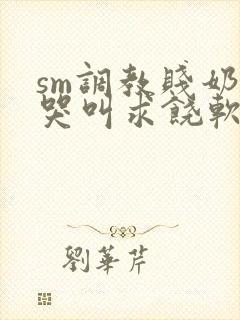 sm調教賤奶
哭叫求饒軟
劉華芹